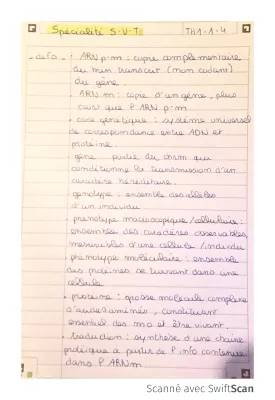 Spécialité S.V.T
TH1-1-4
- défs
• ARN p-m : copie complémentaire
du brin transcrit (non codant)
du gène.
ARN m : copie d'un gène, plus
court que l'ARN p-m
• code génétique : système universel
de correspondance entre ADN et
protéine.
gène : partie du chrm qui
conditionne la transmission d'un
caractère héréditaire.
génotype : ensemble des allèles
d'un individu
• phénotype macroscopique / cellulaire :
ensembles des caractères observables,
mesurables d'une cellule / individu
phénotype moléculaire : ensemble
des protéines se trouvant dans une
cellule
• protéine : grosse molécule complexe
d'acides aminés, constituant
essentiel des mo et être vivant.
• traduction : synthèse d'une chaîne
protéique à partir de l'info contenue
dans l'ARNm
Scanné avec SwiftScan